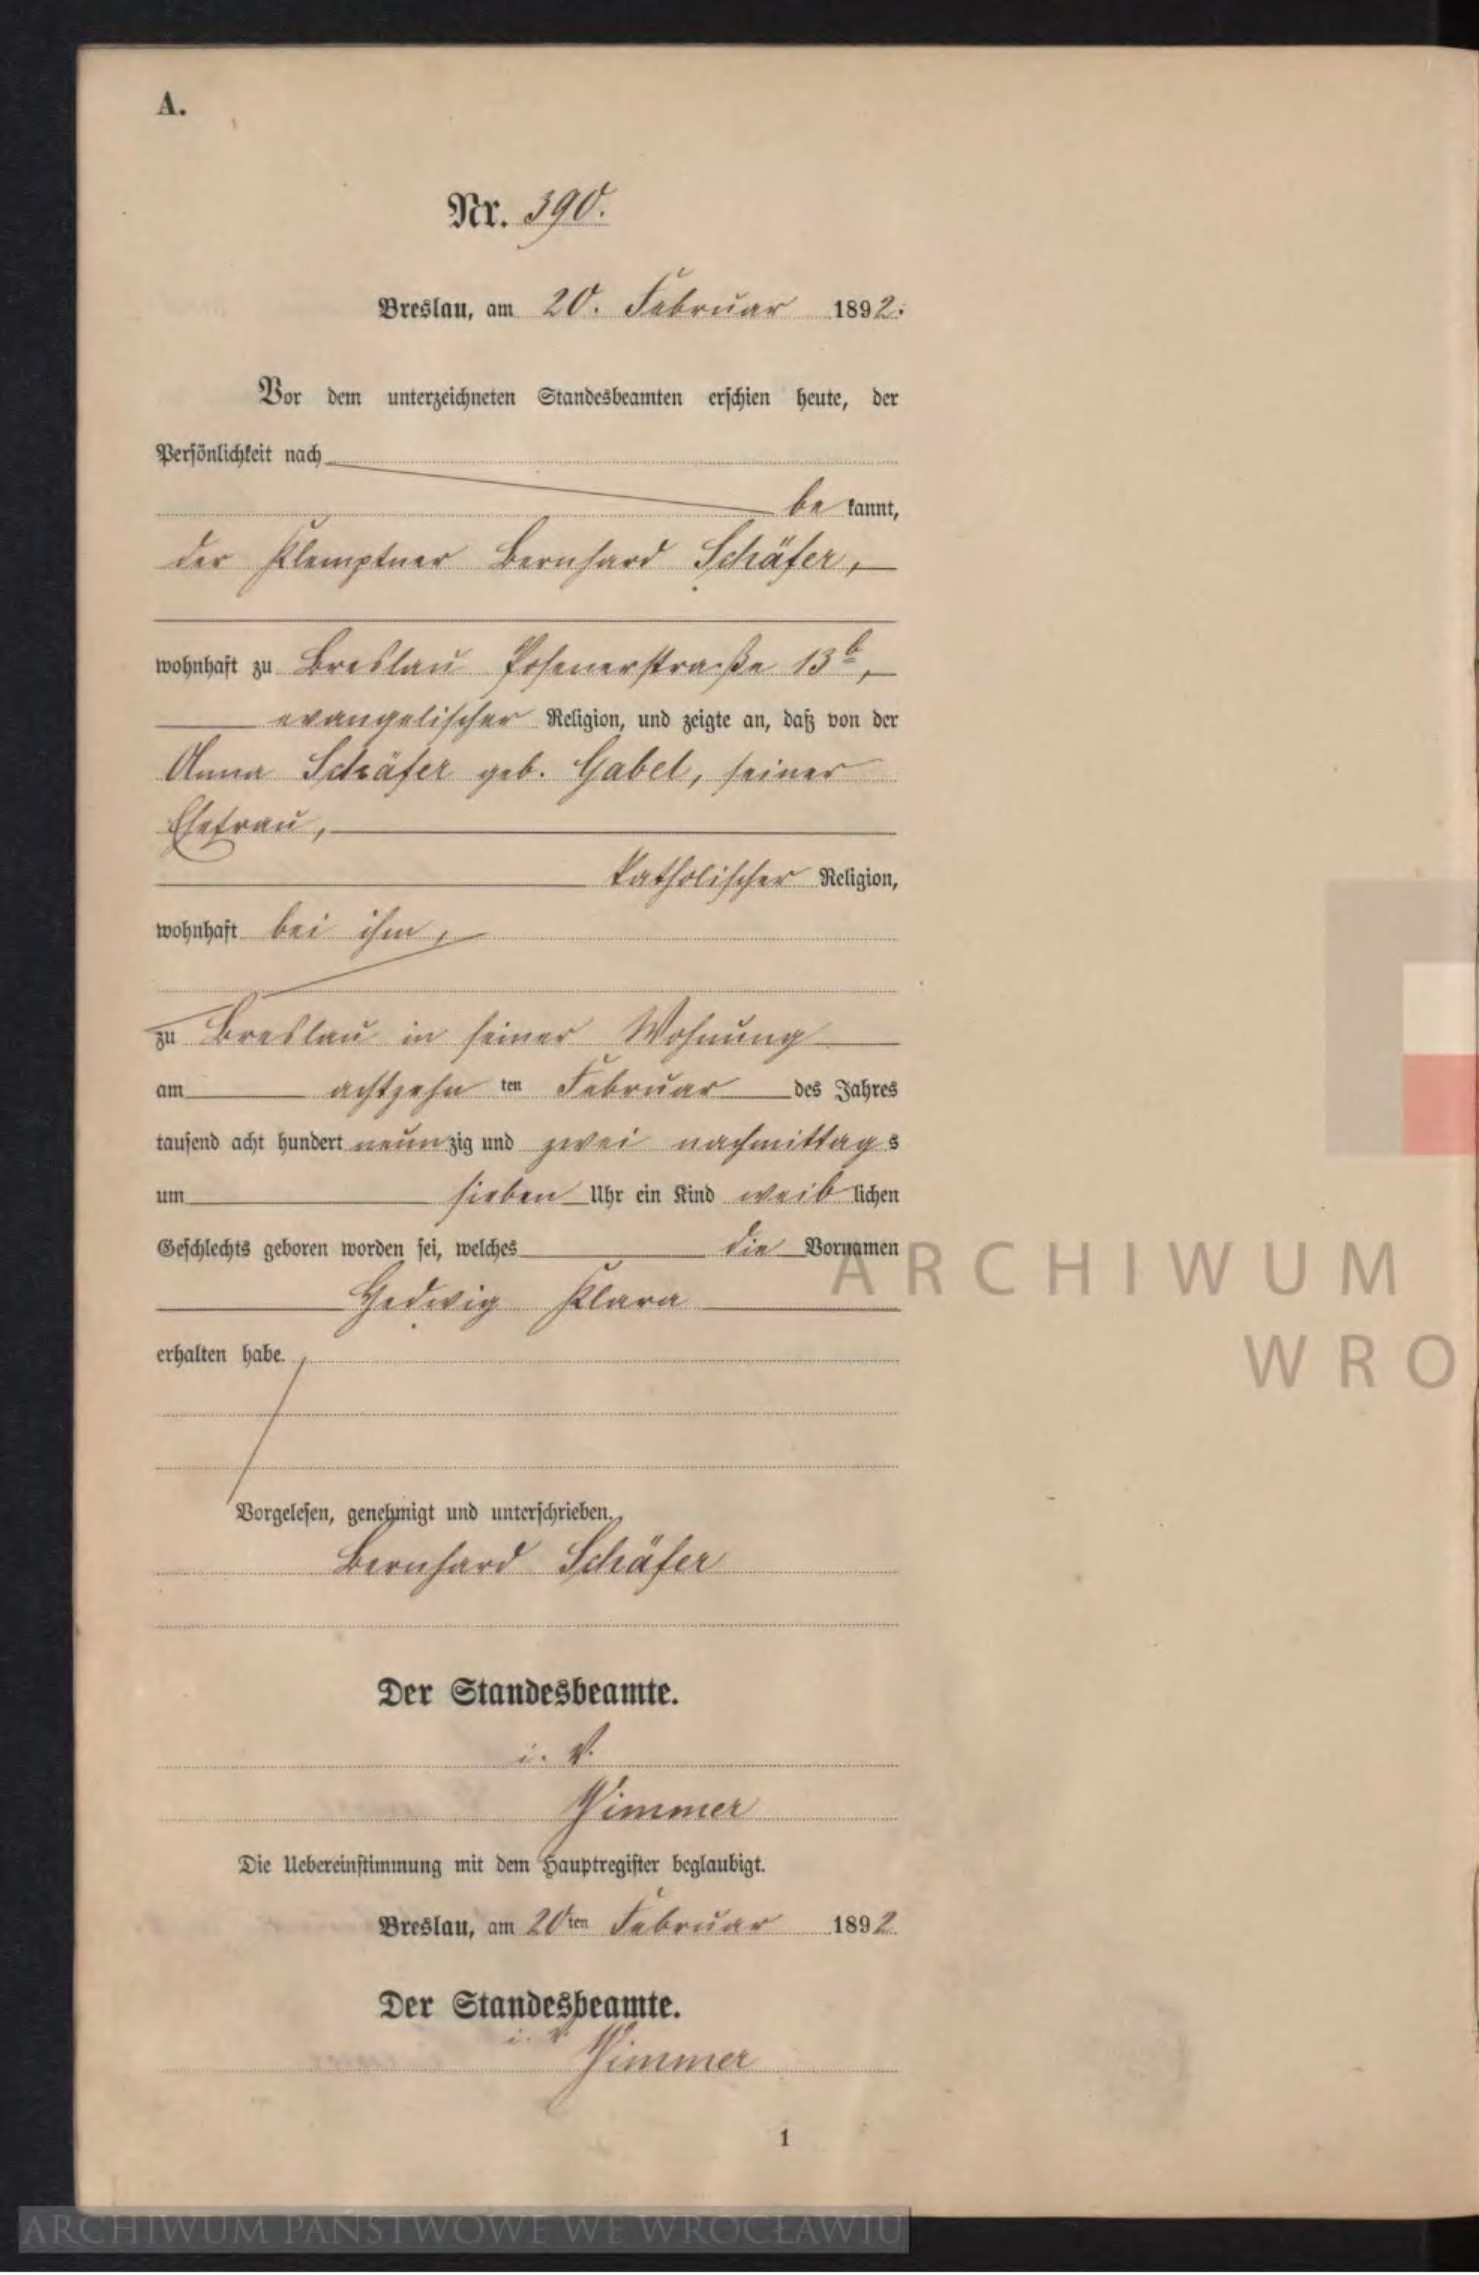 A.
Nr. 390.
Breslau, am 20. Februar 1892.
Vor dem unterzeichneten Standesbeamten erschien heute, der
Persönlichkeit nach
be kannt,
der Klemptner Bernhard Schäfer,
wohnhaft zu Breslau Posenerstraße 13b,
evangelischer Religion, und zeigte an, daß von der
Anna Schäfer geb. Gabel, seiner
Ehefrau,
katholischer Religion,
wohnhaft bei ihm,
zu Breslau in seiner Wohnung
am achtzehn ten Februar des Jahres
tausend acht hundert neun zig und zwei nachmittag s
um sieben Uhr ein Kind weib lichen
Geschlechts geboren worden sei, welches die Vornamen
Hedwig Klara
erhalten habe.
Vorgelesen, genehmigt und unterschrieben.
Bernhard Schäfer
Der Standesbeamte.
i. V.
Die Uebereinstimmung mit dem Hauptregister beglaubigt.
Breslau, am 20ten Februar 1892
Der Standesbeamte.
i. V.
1
ARCHIWUM
WRO
ARCHIWUM PAŃSTWOWE WE WROCŁAWIU